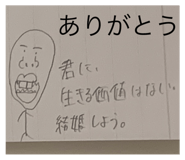 ありがとう
君に、
生きる価値はない。
結婚しよう。